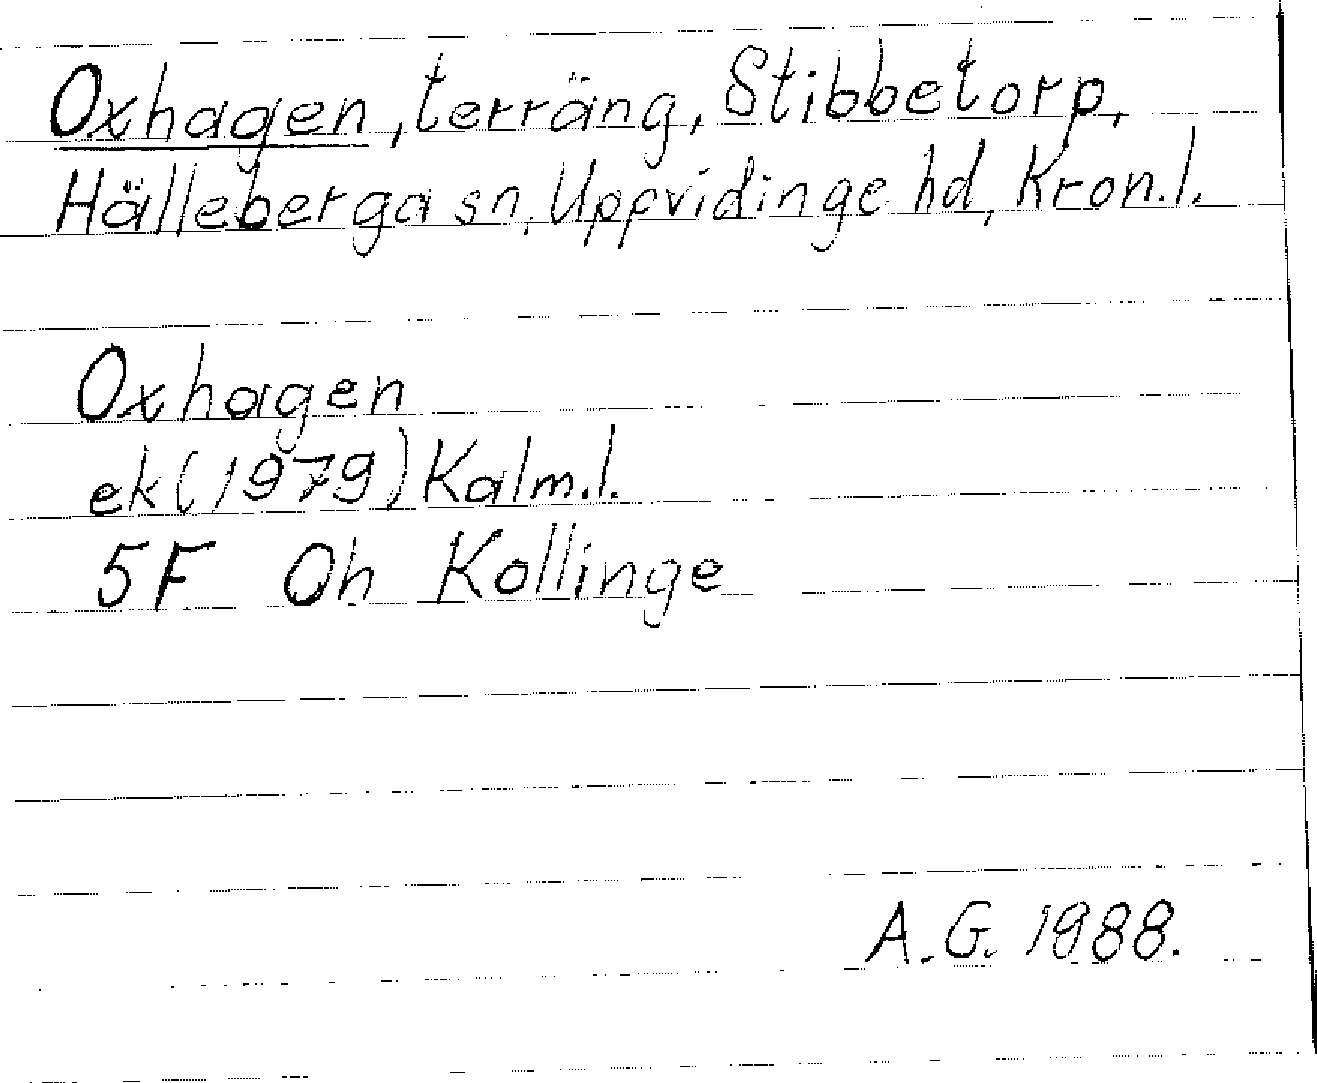 Oxhagen, terräng, Stibbetorp,
Hälleberga sn, Uppvidinge hd, Kron.l.
Oxhagen
ek(1979)Kalm.l.
5F Oh Kollinge
A.G. 1988.